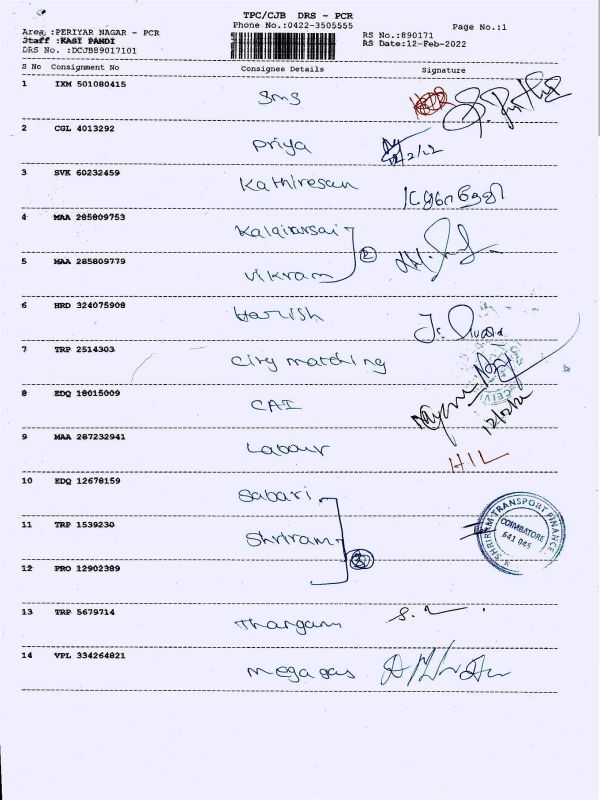 TPC/CJB DRS - PCR
Area :PERIYAR NAGAR - PCR
Phone No.:0422-3505555
Page No.:1
Staff :KASI PANDI
RS No.:890171
DRS No. :DCJB89017101
RS Date:12-Feb-2022
S No Consignment No Consignee Details Signature
1 IXM 501080415 sms
2 CGL 4013292 Priya 12/2/22
3 SVK 60232459 Kathiresan
4 MAA 285809753 Kalaiarasai
2
5 MAA 285809779 Vikram
6 HRD 324075908 Harish
7 TRP 2514303 City matching
8 EDQ 18015009 CAI
12/02/22
9 MAA 287232941 Labour HIL
10 EDQ 12678159 Sabari
SHRIRAM TRANSPORT FINANCE
COIMBATORE
641 045
11 TRP 1539230 Shriram
3
12 PRO 12902389
13 TRP 5679714 Thangam
14 VPL 334264821 Megagas